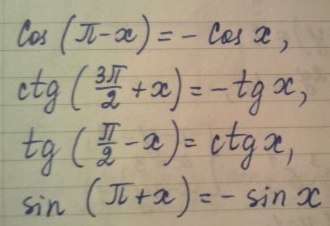 cos (π-x) = - cos x,
ctg (3π/2 + x) = - tg x,
tg (π/2 - x) = ctg x,
sin (π+x) = - sin x